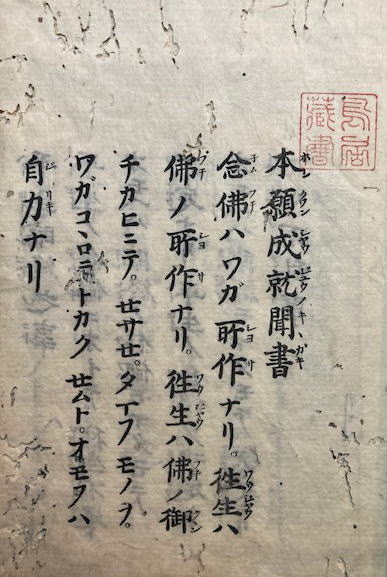 本願成就聞書
念佛ハワガ所作ナリ。徃生ハ
佛ノ所作ナリ。徃生ハ佛ノ御
チカヒニテ。セサセ。タマフモノヲ。
ワガコヽロニテトカクセムト。オモフハ
自力ナリ
藏書